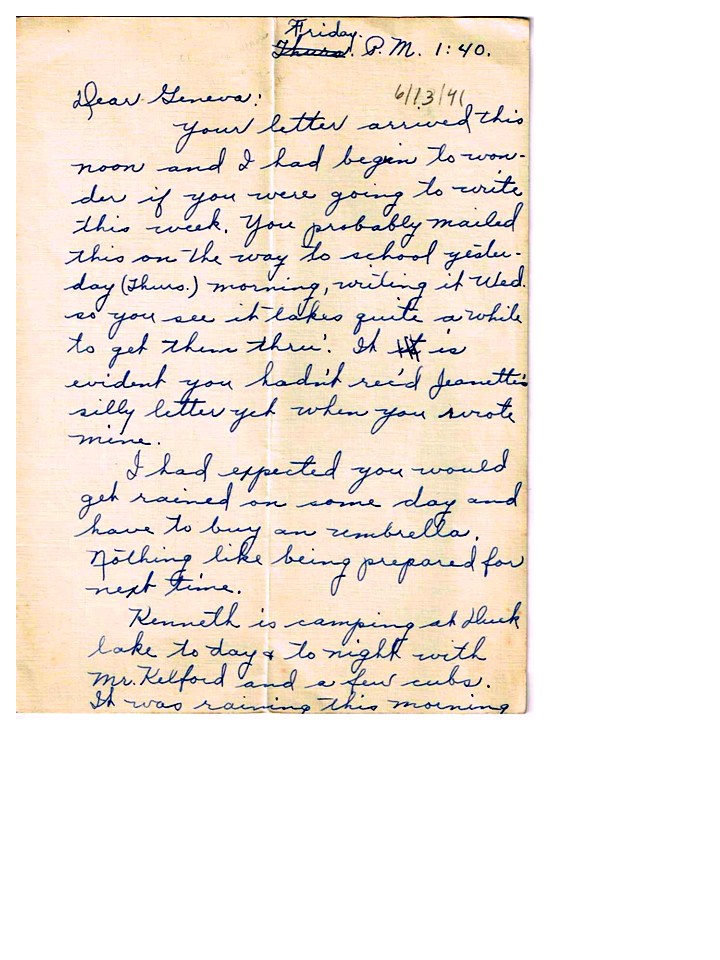 Friday.
Thurs. P.M. 1:40.
Dear Geneva: 6/13/41
Your letter arrived this
noon and I had begin to won-
der if you were going to write
this week. You probably mailed
this on the way to school yester-
day (Thurs.) morning, writing it Wed.
so you see it takes quite a while
to get them thru'. It is
evident you hadn't rec'd Jeanette's
silly letter yet when you wrote
mine.
I had expected you would
get rained on some day and
have to buy an umbrella.
Nothing like being prepared for
next time.
Kenneth is camping at Duck
lake to day & to night with
Mr. Kelford and a few cubs.
It was raining this morning